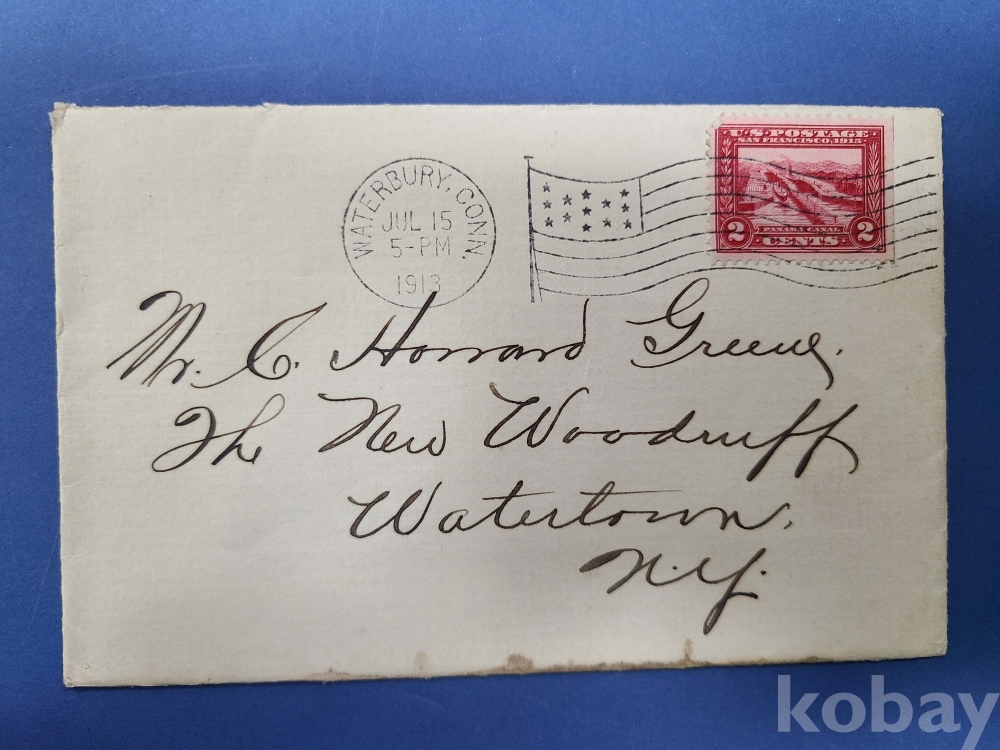 WATERBURY, CONN.
JUL 15
5-PM
1913
U.S. POSTAGE
SAN FRANCISCO, 1915
2 PANAMA CANAL 2
CENTS
Mr. C. Howard Greene,
The New Woodruff
Watertown,
N.Y.
kobay